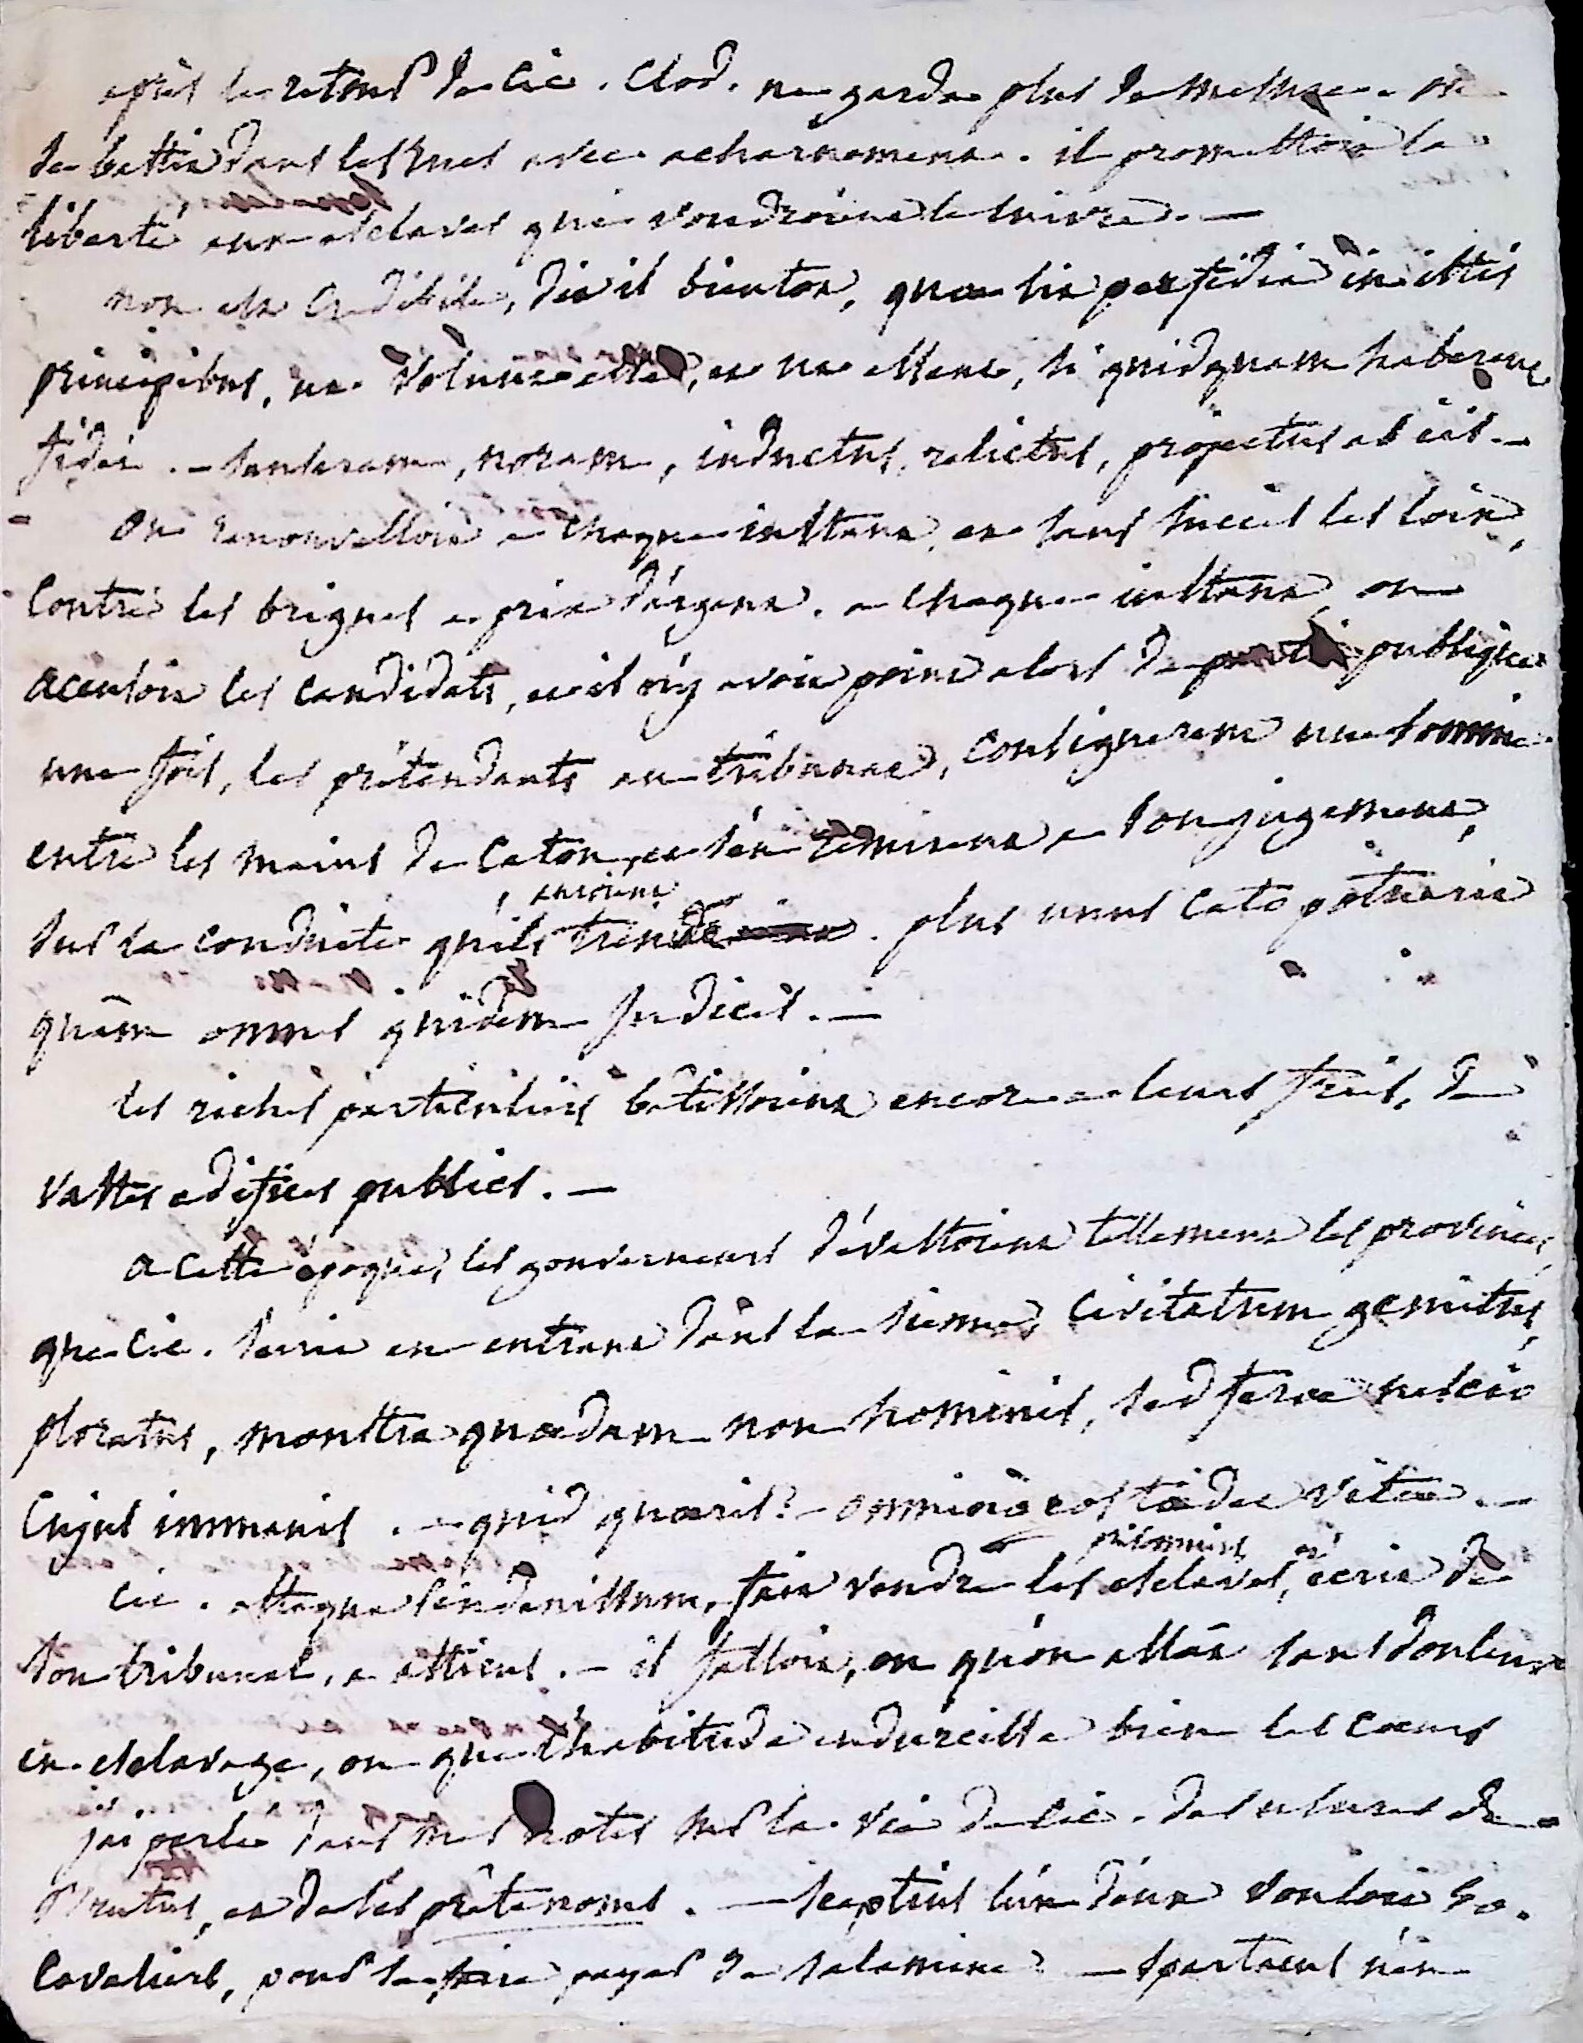 après le retour de Cic. Clod. ne garda plus de mesure. on
se battit dans les rues avec acharnement. il promettoit la
liberté aux esclaves qui voudroient le suivre. —
non est credibile, disoit bientot, quae sit perfidia in istis
principibus, ut volunt esse, et ut essent, si quidquam haberent
fidei. — senseram, noram, inductus, relictus, projectus ab iis. —
on renouvelloit a chaque instant, et sans succès les loix,
contre les brigues a prix d'argent. a chaque instant, on
accusoit les candidats, et il n'y avoit point alors de publique
une fois, les prétendants au tribunat, consignerent une somme
entre les mains de Caton, et s'en remirent a son jugement,
sur la conduite qu'ils auroient tenue. plus unus Cato potuerit
quâm omnes quidem judices. —
les riches particuliers bâtissoient encore a leurs frais, de
vastes edifices publics. —
a cette époque, les gouverneurs dévastoient tellement les provinces,
que Cic. écrit en entrant dans la sienne, civitatum gemitus,
ploratus, monstra quaedam non hominis, sed ferae nescio
cujus immanis. — quid quaeris? — omnino eos taedet vitae. —
Cic. attaqua Pindenissum, fait vendre les esclaves, prisonniers et écrit de
son tribunal, a atticus. — il falloit, ou qu'on allât sans douleur
en esclavage, ou que l'habitude endurcisse bien les coeurs
j'ai parlé dans mes notes sur la vie de Cic. des usures de
Brutus, et de ses prête noms. — Scaptius l'un d'eux vouloit 50.
cavaliers, pour se faire payer de Salamine — Spartacus n'en